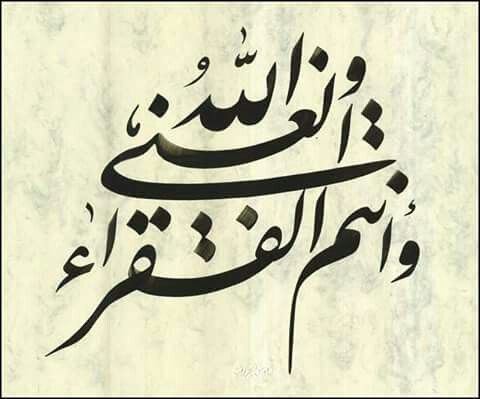 والله الغنی
وانتم الفقراء